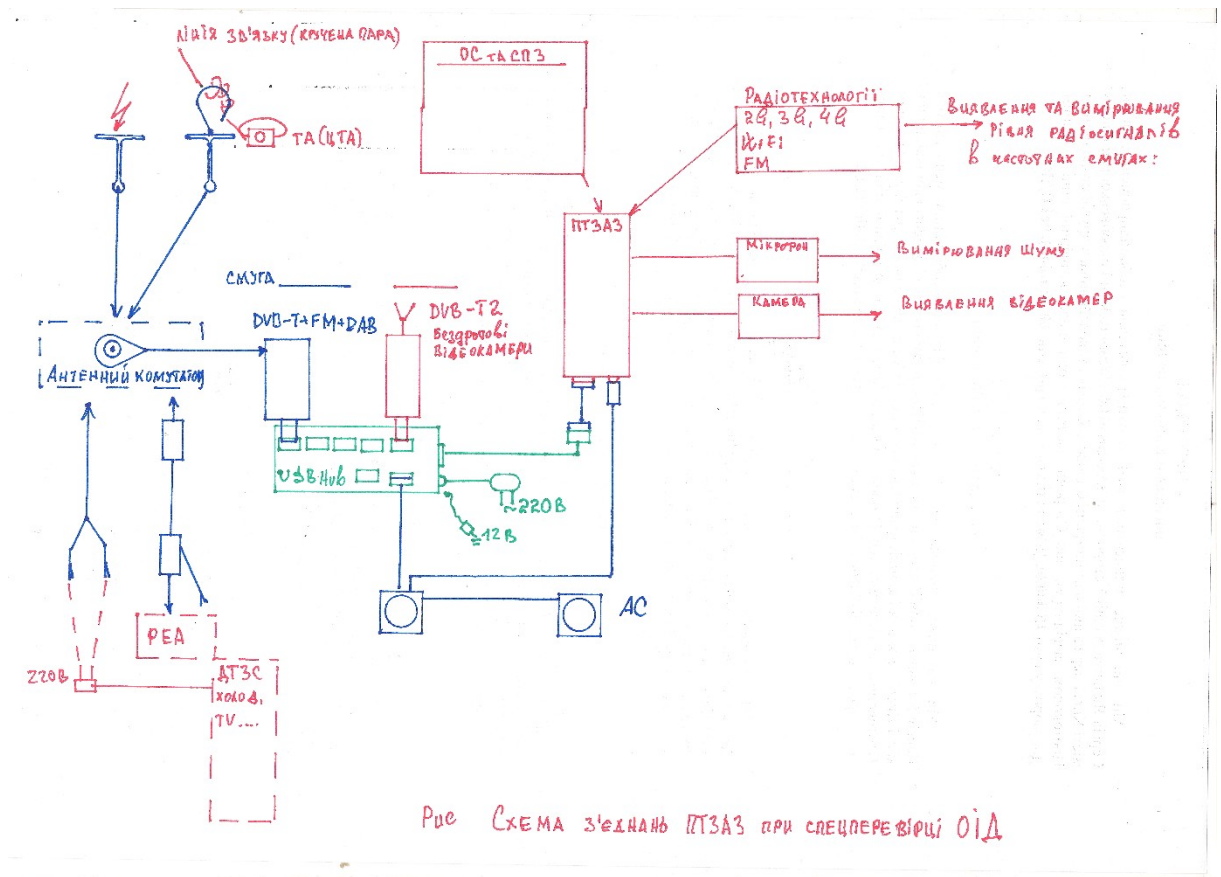 ЛІНІЯ ЗВ'ЯЗКУ (КРУЧЕНА ПАРА)
ТА (ЦТА)
ОС ТА СПЗ
РАДІОТЕХНОЛОГІЇ
2G, 3G, 4G
Wi-Fi
FM
ВИЯВЛЕННЯ ТА ВИМІРЮВАННЯ
РІВНЯ РАДІОСИГНАЛІВ
В ЧАСТОТНИХ СМУГАХ:
ПТЗАЗ
МІКРОФОН
ВИМІРЮВАННЯ ШУМУ
КАМЕРА
ВИЯВЛЕННЯ ВІДЕОКАМЕР
СМУГА
DVB-T+FM+DAB
DVB-T2
БЕЗДРОТОВІ
ВІДЕОКАМЕРИ
АНТЕННИЙ КОМУТАТОР
USB Hub
~220В
12В
АС
РЕА
220В
ДТЗС
ХОЛОД,
TV....
Рис СХЕМА З'ЄДНАНЬ ПТЗАЗ ПРИ СПЕЦПЕРЕВІРЦІ ОІД